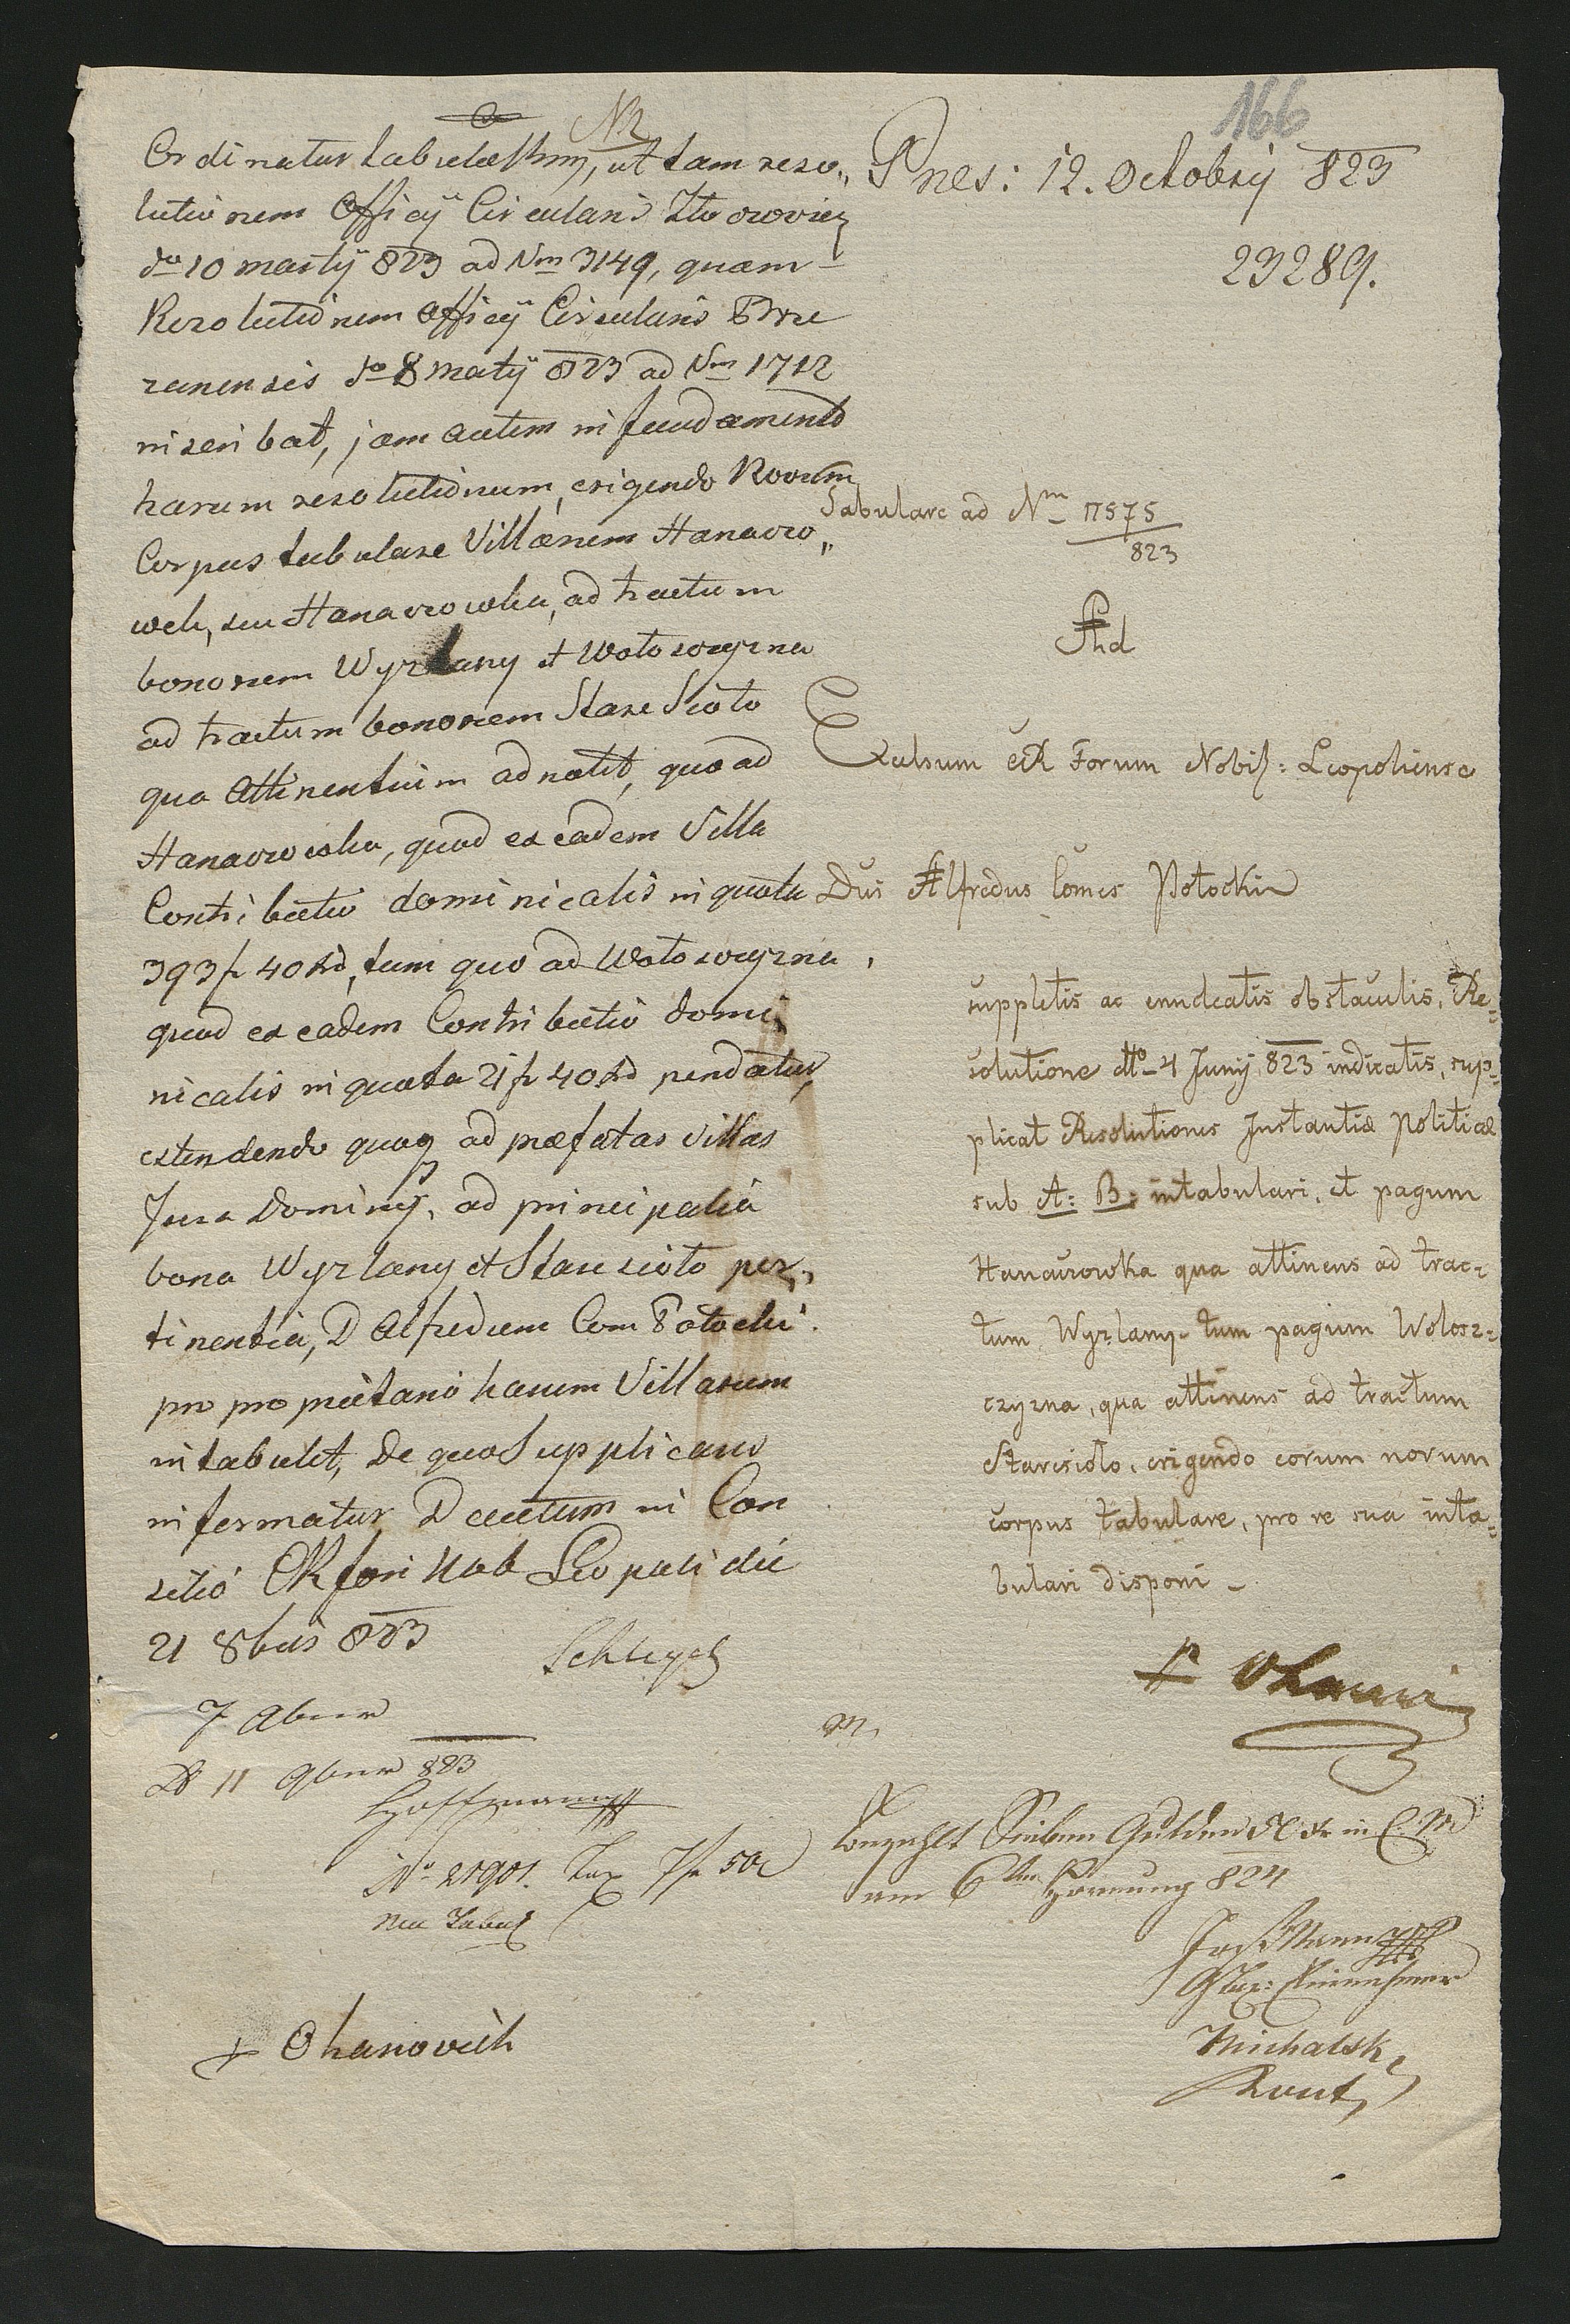 166
Nr
Ordinatur Tabulae Rnii, ut tam reso„
lutionem Officij Circularis Złoczoviens
do 10 Martij 823 ad Nm 3149, quam
Resolutionem Officij Circularis Brze
zanensis do 8 Maij 823 ad Nm 1712
inscribat, jam autem in fundamento
harum resolutionum, erigendo Novum
Corpus tabulare Villarum Hanaczo„
wek, seu Hanaczowka, ad tractum
bonorum Wyzlany et Wołoszczyzna
ad tractum bonorum Stare Sioło
qua Attinentium adnotet, quo ad
Hanaczowka, quod ex eadem Villa
Contributio dominicalis in quota
393 fr 40 xd, tum quo ad Wołoszczyzna,
quod ex eadem Contributio domi„
nicalis in quota 21 fr 40 xd pendatur,
extendendo quoq ad praefatas villas
Jura Dominij, ad principalia
bona Wyzlany et Stare sioło per„
tinentia, D Alfredum Com Potocki
pro proprietario harum Villarum
intabulet, De quo Supplicans
informatur Datum in Con
silio CR fori Nob Leopoli die
21 8bris 823
Schlegel
7 9bris
11 9bris 823
Hoffmann
No 21901. Tax 7 fr 50
+ Ohanovich
Pnes: 12. Octobrij 823
23289.
Tabulare ad Nm 17575
823
Ad
Exclsum CR Forum Nobil: Leopoliense
Dus Alfredus Comes Potocki
suppletis ac enudeatis obstaculis, Re„
solutione dtto 4 Junij 823 indicatis, sup„
plicat Resolutiones Instantiæ Politicæ
sub A: B: intabulari, et pagum
Hanaurowka qua attinens ad trac„
tum Wyzlany tum pagum Wolosz„
czyzna, qua attinens ad tractum
Staresioło, erigendo eorum novum
corpus tabulare, pro re sua inta„
bulari disponi
bezahlt Sieben Gulden 50 xr in C. M
am 6ten Hornung 824
Michalsk